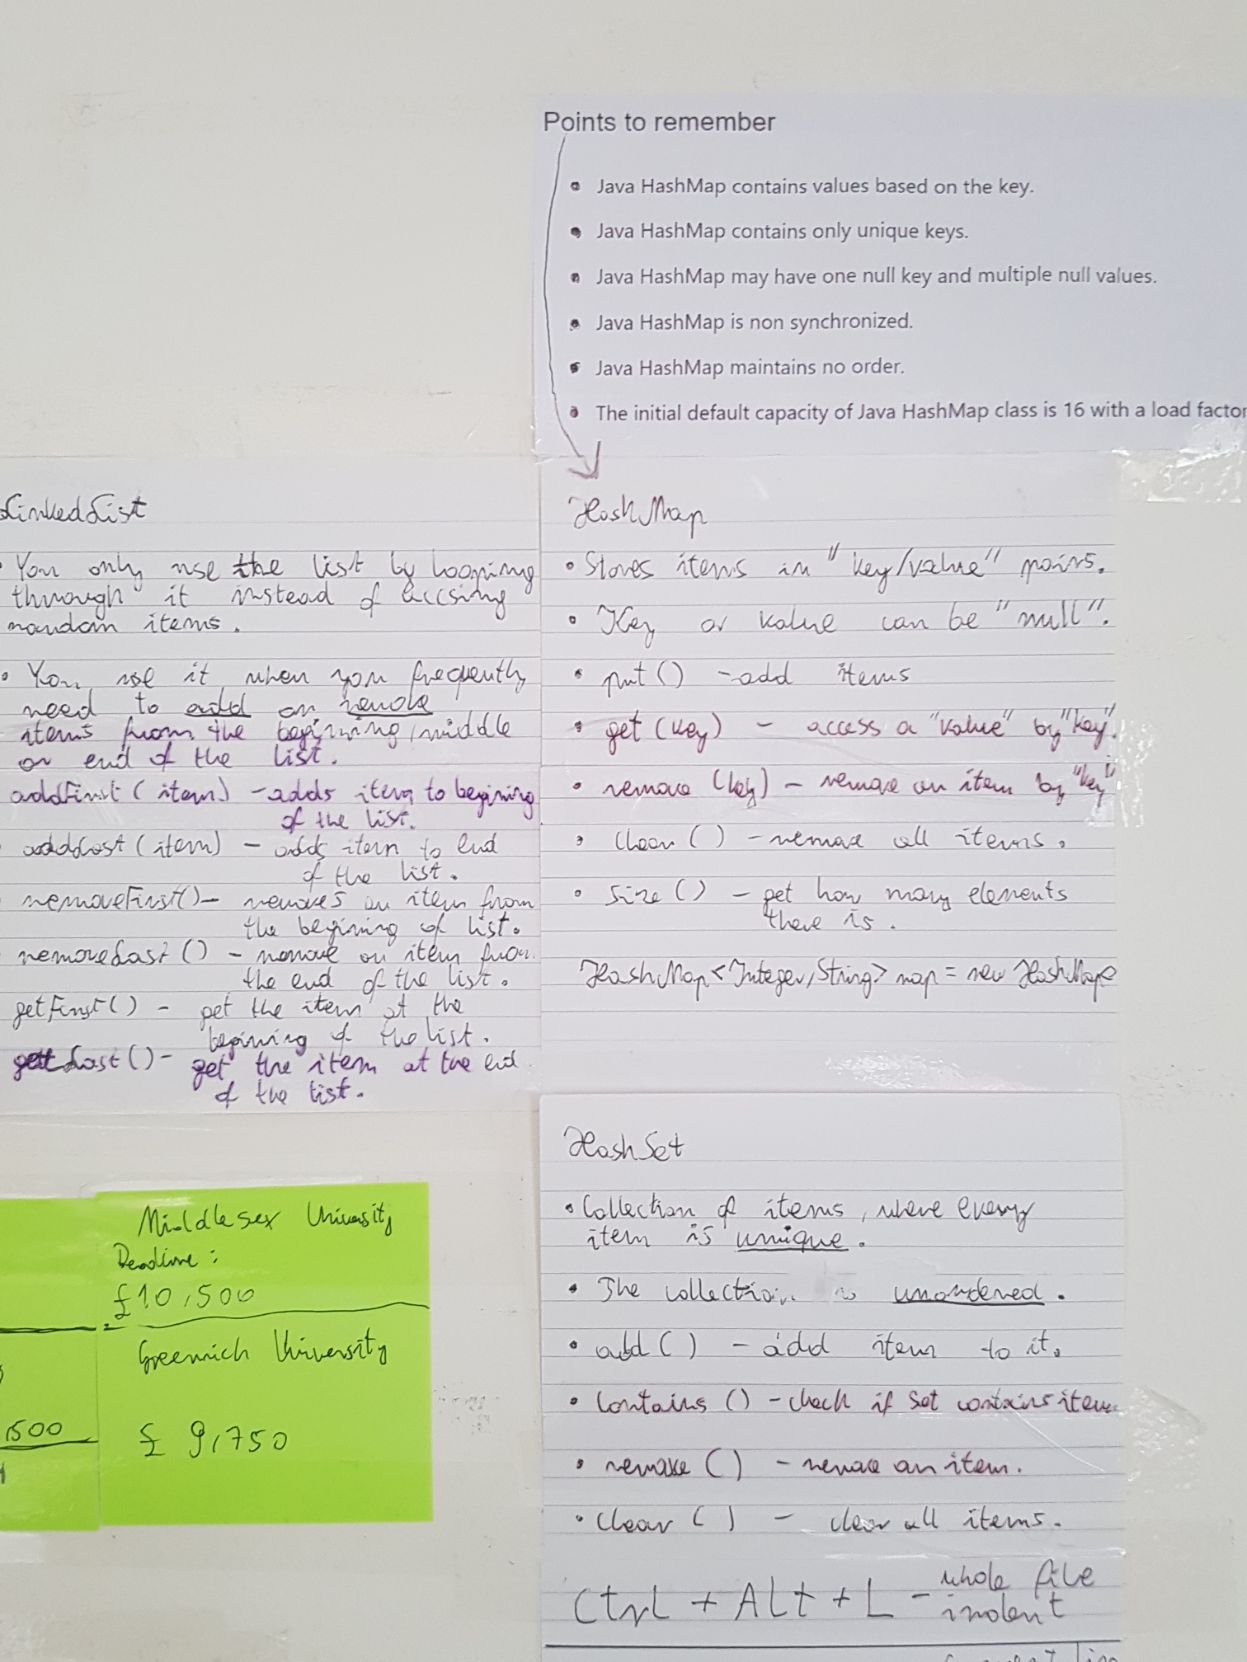 Points to remember
• Java HashMap contains values based on the key.
• Java HashMap contains only unique keys.
• Java HashMap may have one null key and multiple null values.
• Java HashMap is non synchronized.
• Java HashMap maintains no order.
• The initial default capacity of Java HashMap class is 16 with a load factor
LinkedList
• You only use the list by looping
through it instead of accsing
random items.
• You use it when you frequently
need to add or remove
items from the beginning, middle
or end of the list.
addFirst (item) - adds item to begining
of the list.
addLast (item) - adds item to end
of the list.
removeFirst() - removes an item from
the begining of list.
removeLast () - remove an item from
the end of the list.
getFirst() - get the item at the
begining of the list.
getLast () - get the item at the end
of the list.
HashMap
• Stores items in "key/value" pairs.
• Key or value can be "null".
• put () - add items
• get (key) - access a "value" by "key"
• remove (key) - remove an item by "key"
• clear () - remove all items.
• size () - get how many elements
there is.
HashMap<Integer, String> map = new HashMap
HashSet
• Collection of items, where every
item is unique.
• The collection is unordered.
• add () - add item to it.
• contains () - check if set contains item
• remove () - remove an item.
• clear () - clear all items.
Ctrl + Alt + L - whole file
indent
Middlesex University
Deadline:
£10,500
Greenwich University
£ 9,750
,500